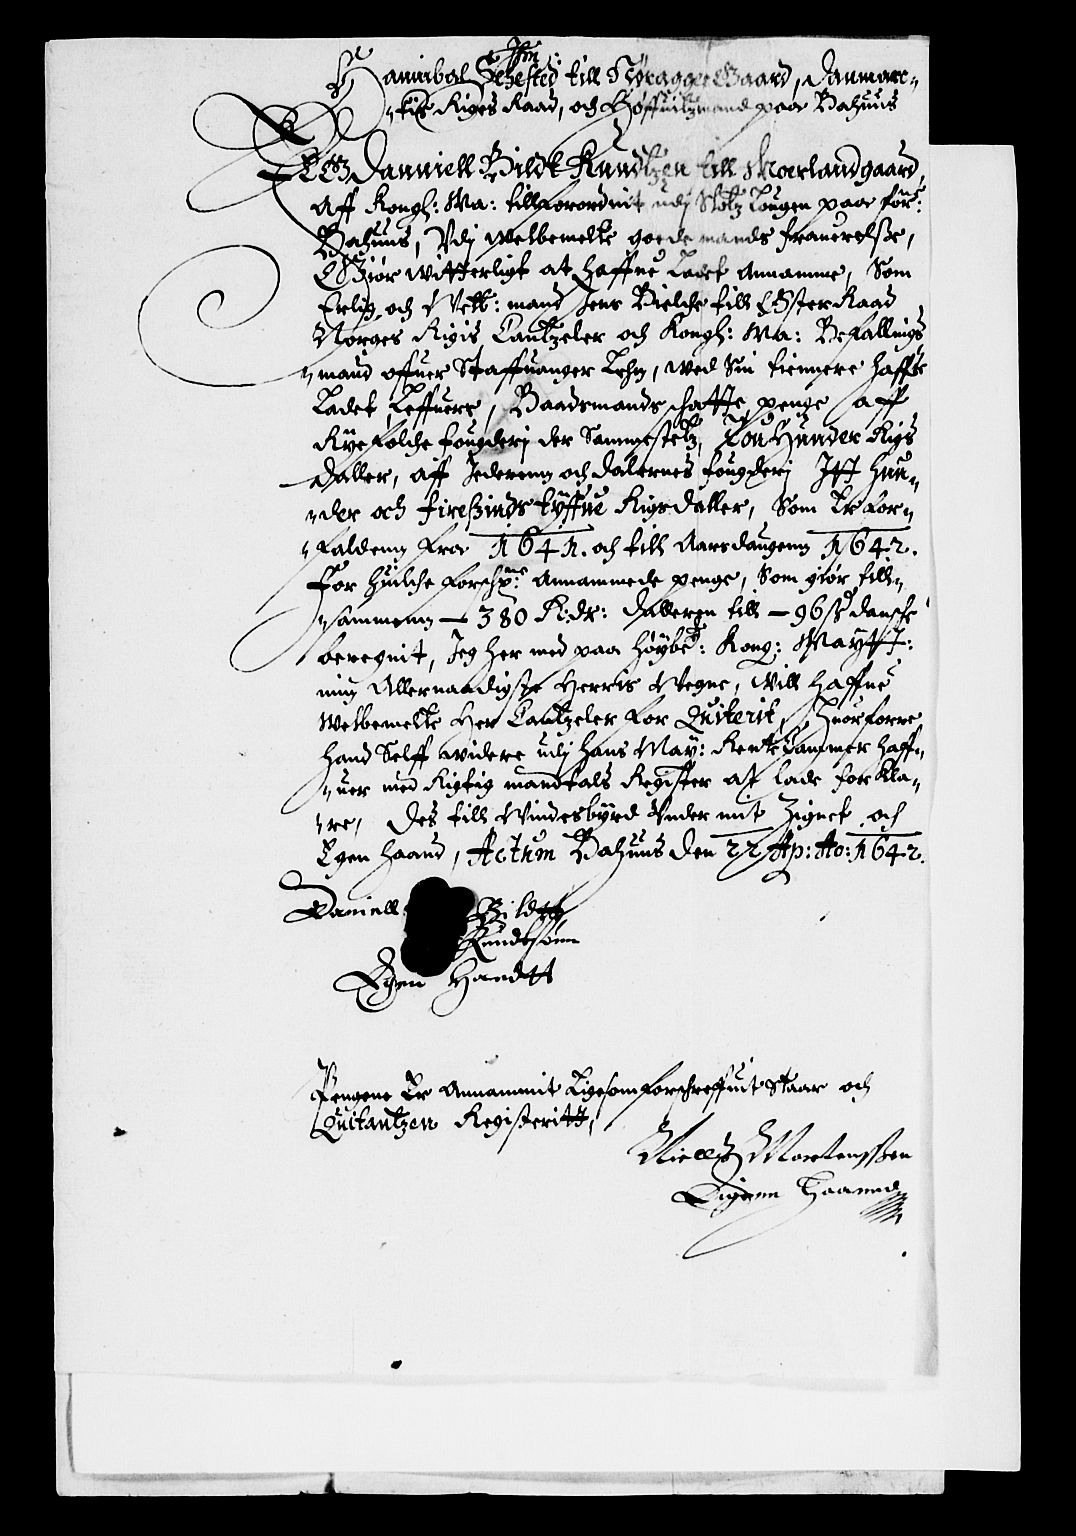 Hr:
Hannibal Sehested till Nøragger Gaard, Danmarc-
-kis Riges Raad, och Høffuitzmand paa Bahuus
JEG Danniell Bildt Knudtzen till Moerlandgaard,
Aff Kongl: Ma: tillforordnit udj Slotz Lougen paa for:ne
Bahuus, Udj Welbemelte goede mands frauerelsse,
Giør Witterligt at haffue Ladet Annamme, Som
Erlig och Velb: mand Jens Bielche till Øster Raad
Norges Rigis Cantzeler och Kongl: Ma: Befallings
-mand offuer Staffuanger Lehn, Wed Sin thiennere haffr
Ladet Leffuere, Baadsmands schatte penge aff
Ryefølche fougderj der Sammestetz, Tou Hunder Rigs
daller, aff Jederenn och dalernes fougderj Jtt Hun-
-der och firesinds tyffue Rigsdaller, Som Er For-
-faldenn fra 1641. och till Aarsdaugenn 1642.
For huilche forschr:ne Annammede penge, Som giør till-
-sammenn — 380 R:dr: dallerenn till — 96 ß danske
beregnit, Jeg her med paa høybe:te Kong: Maytt:
min Allernaadigste Herris Vegne, Will haffue
Welbemelte Her Cantzeler for Quiterit, Huorforre
hand Selff widere udj hans May: Rentekammer haff-
-uer med Rigtig mandtals Register at lade forkla-
-re, Des till Windesbyrd Under mit Zignet och
Egen haand, Actum Bahuus den 22 Ap: Ao: 1642.
Daniell Bildtt
Knudtsønn
Egen Handtt
Pengene Er Annammit Ligesom forschreffuit Staar och
Quitantzen Registeritt,
Niells Mortenssen
Eigenn Haannd